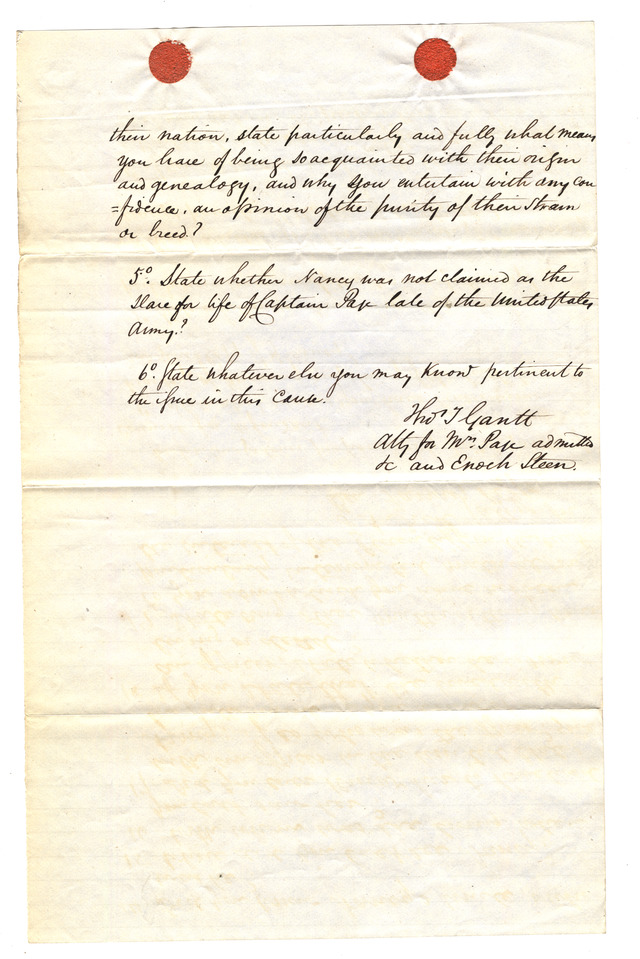 their nation, state particularly and fully what means
you have of being so acquainted with their origin
and genealogy, and why you entertain with any con
=fidence, an opinion of the purity of their strain
or breed?
5°. State whether Nancy was not claimed as the
slave for life of Captain Page late of the United States
Army.?
6°. State whatever else you may know pertinent to
the issue in this cause.
Thos T Gantt
Atty for Mrs. Page admtrx
&c and Enoch Steen.